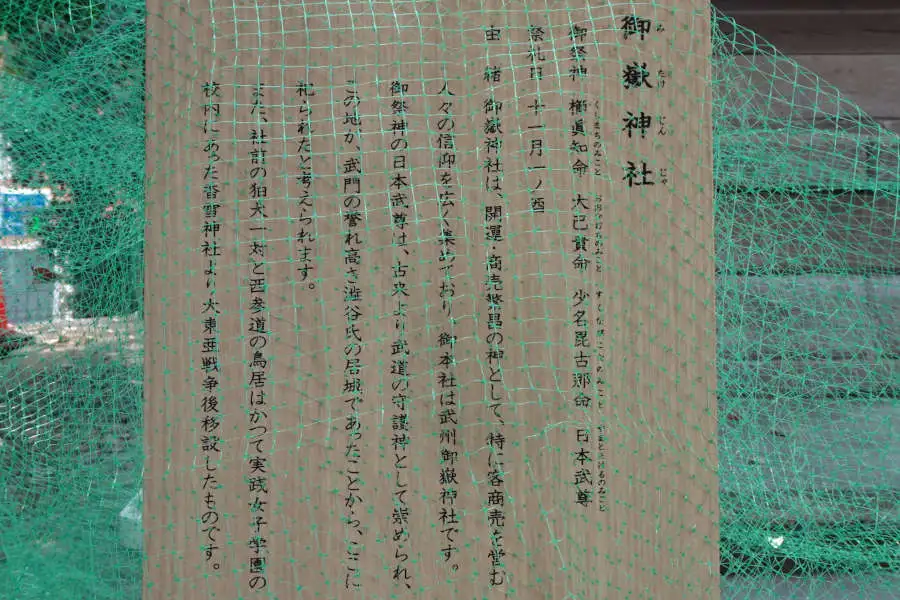 御嶽神社
みたけじんじゃ
御祭神 櫛眞知命 大己貴命 少名毘古那命 日本武尊
くしまちのみこと おおなむちのみこと すくなびこなのみこと やまとたけるのみこと
祭礼日 十一月一ノ酉
由緒 御嶽神社は、開運・商売繁昌の神として、特に客商売を営む
人々の信仰を広く集めており、御本社は武州御嶽神社です。
御祭神の日本武尊は、古来より武道の守護神として崇められ、
この地が、武門の誉れ高き澁谷氏の居城であったことから、ここに
祀られたと考えられます。
また、社前の狛犬一対と西参道の鳥居はかつて実践女子学園の
校内にあった香雪神社より大東亜戦争後移設したものです。